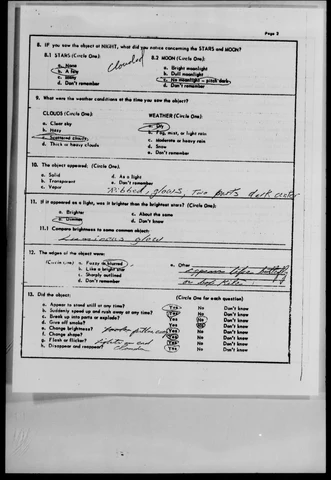 Page 2
8. IF you saw the object at NIGHT, what did you notice concerning the STARS and MOON?
8.1 STARS (Circle One): Clouded 8.2 MOON (Circle One):
a. None a. Bright moonlight
b. A few b. Dull moonlight
c. Many c. No moonlight – pitch dark
d. Don't remember d. Don't remember
9. What were the weather conditions at the time you saw the object?
CLOUDS (Circle One): WEATHER (Circle One):
a. Clear sky a. Dry
b. Hazy b. Fog, mist, or light rain
c. Scattered clouds c. Moderate or heavy rain
d. Thick or heavy clouds d. Snow
e. Don't remember
10. The object appeared: (Circle One):
a. Solid d. As a light
b. Transparent e. Don't remember
c. Vapor Ribbed, glows, two parts dark center
11. If it appeared as a light, was it brighter than the brightest stars? (Circle One):
a. Brighter c. About the same
b. Dimmer d. Don't know
11.1 Compare brightness to some common object:
Luminous glow
12. The edges of the object were:
(Circle One): a. Fuzzy or blurred e. Other
b. Like a bright star appears like butterfly
c. Sharply outlined or box kite
d. Don't remember
13. Did the object: (Circle One for each question)
a. Appear to stand still at any time? Yes No Don't know
b. Suddenly speed up and rush away at any time? Yes No Don't know
c. Break up into parts or explode? Yes No Don't know
d. Give off smoke? Yes No Don't know
e. Change brightness? Yes No Don't know
f. Change shape? Yes No Don't know
g. Flash or flicker? lights on end Yes No Don't know
h. Disappear and reappear? Clouds Yes No Don't know